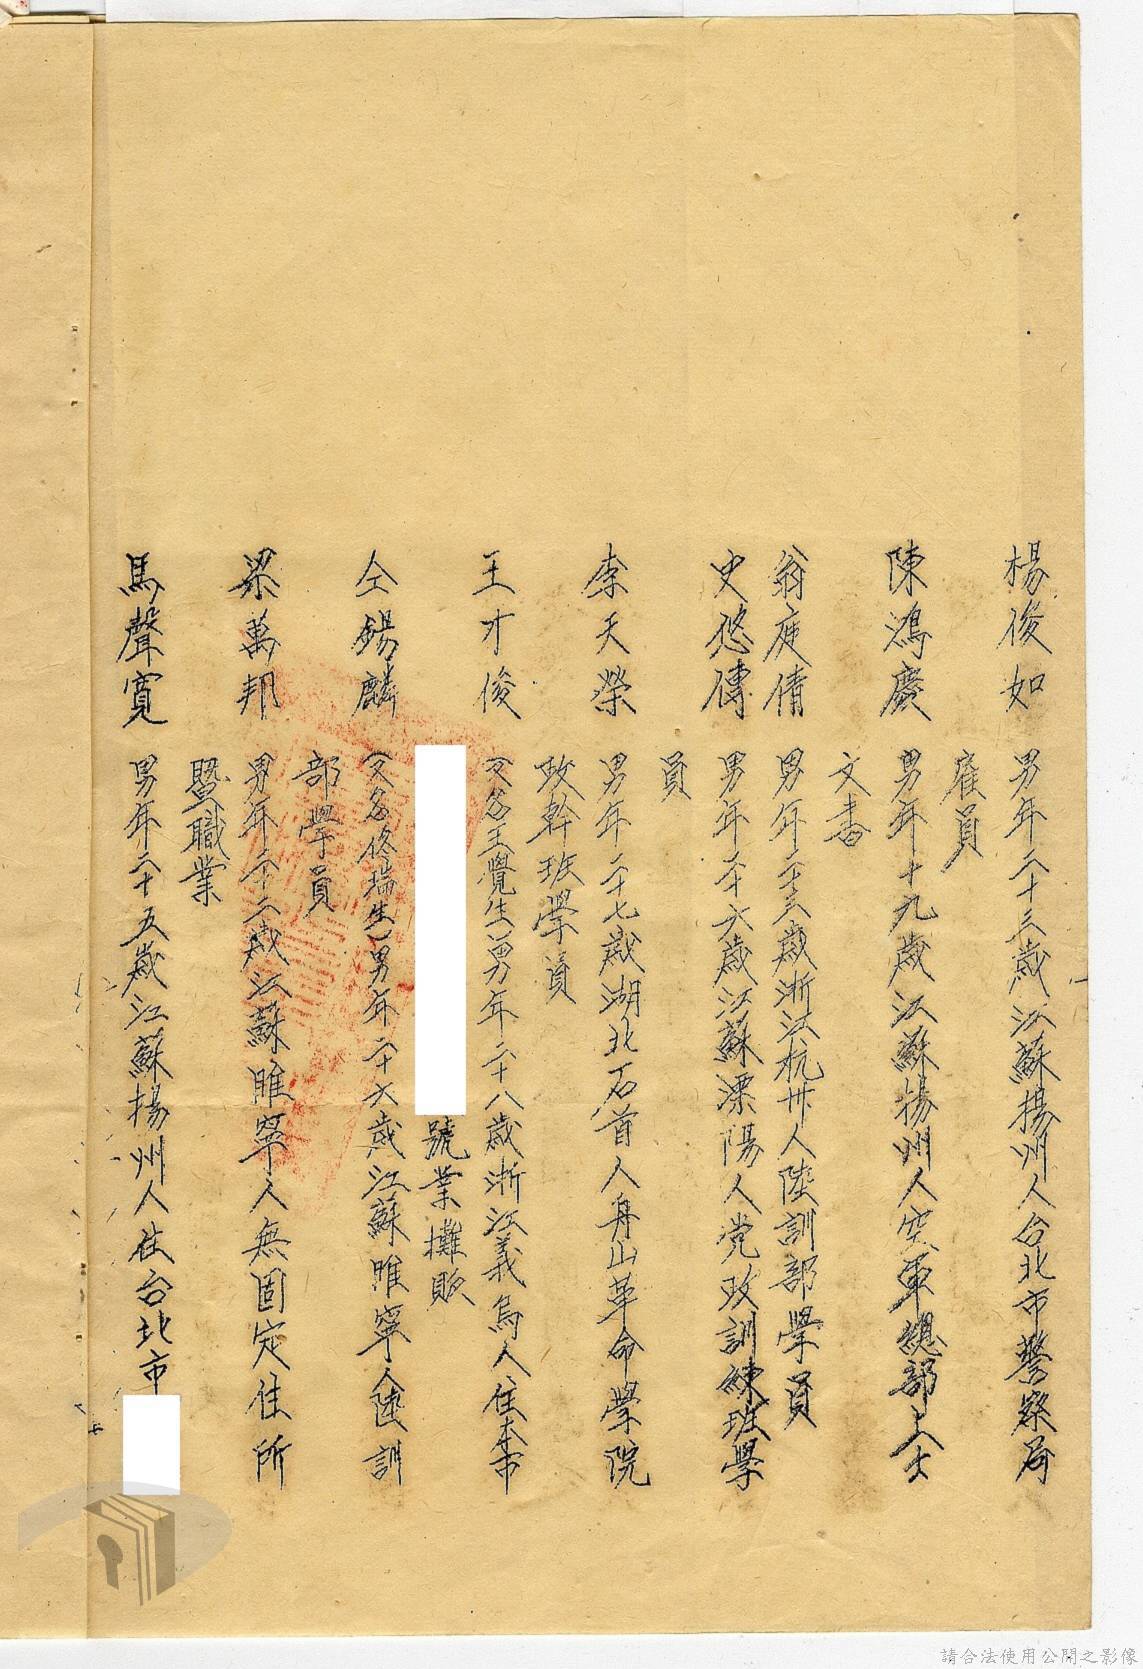 楊俊如 男年二十三歲江蘇揚州人台北市警察局
雇員
陳鴻慶 男年十九歲江蘇揚州人空軍總部上士
文書
翁庭倩 男年二十三歲浙江杭州人陸訓部學員
史悠傳 男年二十六歲江蘇溧陽人党政訓練班學
員
李天榮 男年二十七歲湖北石首人舟山革命學院
政幹班學員
王才俊 (又名王覺生)男年二十八歲浙江義烏人住本市
號業攤販
仝錫麟 (又名佟瑞生)男年二十六歲江蘇睢寧人陸訓
部學員
梁萬邦 男年二十二歲江蘇睢寧人無固定住所
暨職業
馬聲寬 男年二十五歲江蘇揚州人住台北市
請合法使用公開之影像